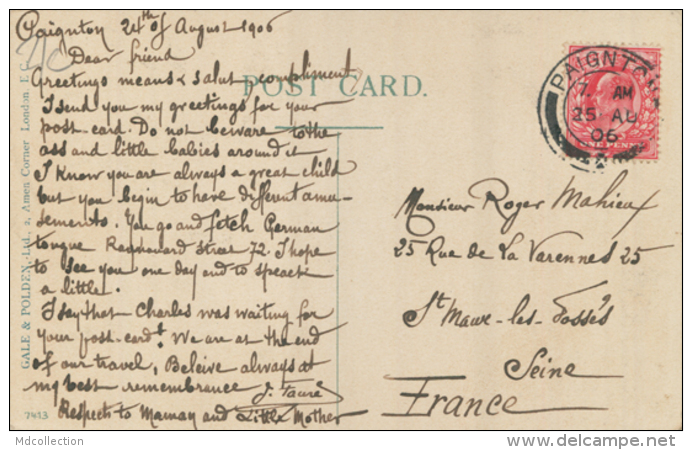 Paignton 24th of August 1906
Dear friend
Greetings means salut compliment
POST CARD.
I send you my greetings for your
post-card. Do not beware to the
ass and little babies around it
I know you are always a great child
but you begin to have different amu-
sements. You go and fetch German
tongue Street 72. I hope
to see you one day and to speack
a little.
I say that Charles was waiting for
your post-card. We are at the end
of our travel, Beleive always at
my best remembrance J. Faure
Respects to Maman and Little Mother
GALE & POLDEN, Ltd., 2, Amen Corner London, E.C.
7413
PAIGNTON
7 AM
25 AU
06
ONE PENNY
Monsieur Roger Mahieux
25 Rue de La Varennes 25
St Maur-les-Fossés
Seine
France
Mdcollection
delcampe.net